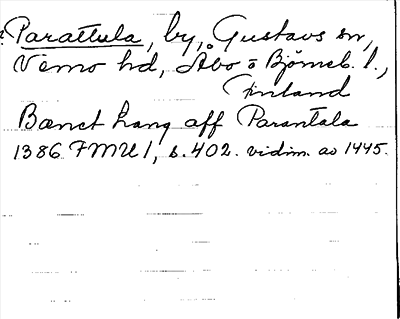 Parattula, by, Gustavs sn,
Vemo hd, Åbo o Björneb. l.,
Finland
Bænct hang aff Parantala
1386 FMU 1, s. 402. vidim. av 1445.